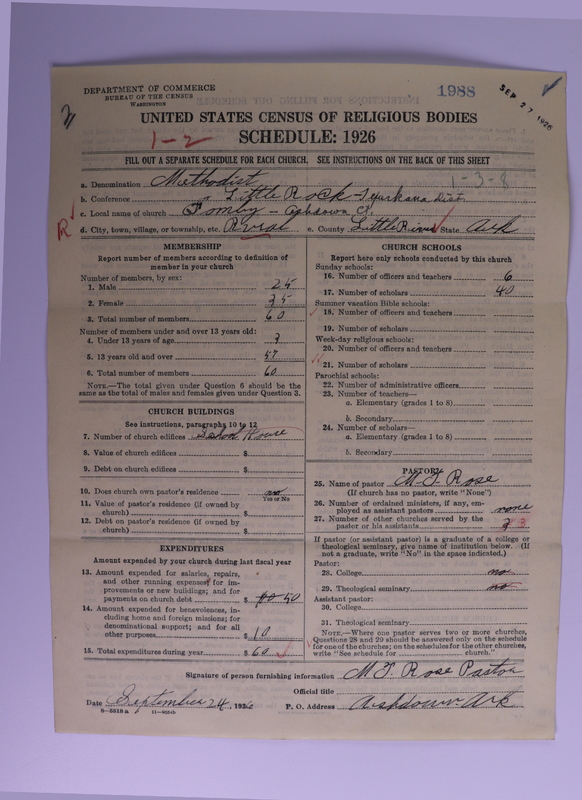 DEPARTMENT OF COMMERCE
BUREAU OF THE CENSUS
WASHINGTON
1988
SEP 27 1926
UNITED STATES CENSUS OF RELIGIOUS BODIES
1-2
SCHEDULE: 1926
FILL OUT A SEPARATE SCHEDULE FOR EACH CHURCH. SEE INSTRUCTIONS ON THE BACK OF THIS SHEET
a. Denomination Methodist
1-3-8
b. Conference Little Rock - Texarkana dist.
c. Local name of church Fomby - Ashdown Ct.
R
d. City, town, village, or township, etc. Rural e. County Little River State Ark
MEMBERSHIP
Report number of members according to definition of
member in your church
Number of members, by sex:
1. Male 25
2. Female 35
3. Total number of members 60
Number of members under and over 13 years old:
4. Under 13 years of age 3
5. 13 years old and over 57
6. Total number of members 60
NOTE.—The total given under Question 6 should be the
same as the total of males and females given under Question 3.
CHURCH BUILDINGS
See instructions, paragraphs 10 to 12
7. Number of church edifices School House
8. Value of church edifices $
9. Debt on church edifices $
10. Does church own pastor's residence no
Yes or No
11. Value of pastor's residence (if owned by
church) $
12. Debt on pastor's residence (if owned by
church) $
EXPENDITURES
Amount expended by your church during last fiscal year
13. Amount expended for salaries, repairs,
and other running expenses; for im-
provements or new buildings; and for
payments on church debt $ 50
14. Amount expended for benevolences, in-
cluding home and foreign missions; for
denominational support; and for all
other purposes $ 10
15. Total expenditures during year $ 60
CHURCH SCHOOLS
Report here only schools conducted by this church
Sunday schools:
16. Number of officers and teachers 6
17. Number of scholars 40
Summer vacation Bible schools:
18. Number of officers and teachers
19. Number of scholars
Week-day religious schools:
20. Number of officers and teachers
21. Number of scholars
Parochial schools:
22. Number of administrative officers
23. Number of teachers—
a. Elementary (grades 1 to 8)
b. Secondary
24. Number of scholars—
a. Elementary (grades 1 to 8)
b. Secondary
PASTOR
25. Name of pastor M. T. Rose
(If church has no pastor, write "None")
26. Number of ordained ministers, if any, em-
ployed as assistant pastors none
27. Number of other churches served by the
pastor or his assistants 3
If pastor (or assistant pastor) is a graduate of a college or
theological seminary, give name of institution below. (If
not a graduate, write "No" in the space indicated.)
Pastor:
28. College no
29. Theological seminary no
Assistant pastor:
30. College
31. Theological seminary
NOTE.—Where one pastor serves two or more churches,
Questions 28 and 29 should be answered only on the schedule
for one of the churches; on the schedules for the other churches,
write "See schedule for church."
Signature of person furnishing information M. T. Rose Pastor
Official title
Date September 24, 1926 P. O. Address Ashdown Ark